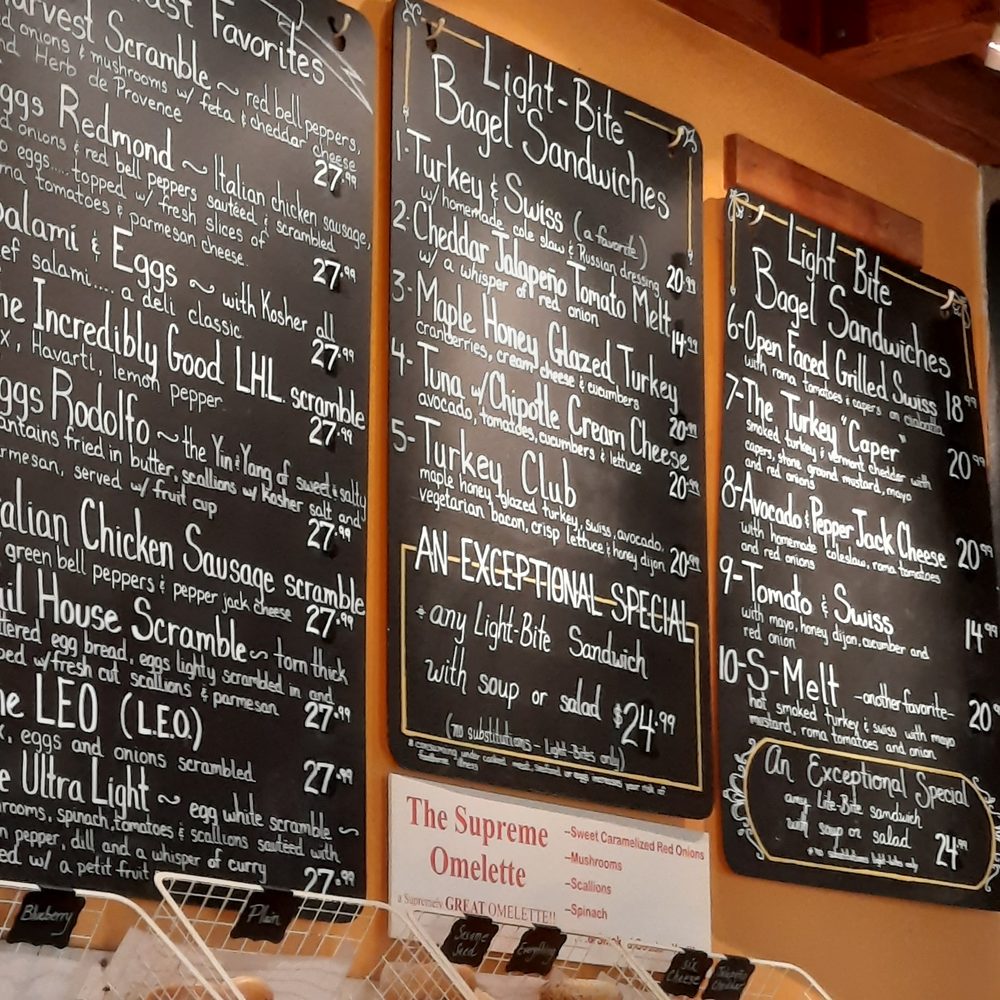 Favorites
Scramble ~ red bell peppers,
onions & mushrooms w/ feta & cheddar cheese
Herb de Provence 27.99
Redmond ~ Italian chicken sausage,
onions & red bell peppers sautéed & scrambled
eggs.... topped w/ fresh slices of
tomatoes & parmesan cheese. 27.99
& Eggs ~ with Kosher all
salami.... a deli classic 27.99
Incredibly Good LHL scramble
Havarti, lemon pepper 27.99
Rodolfo ~ the Yin & Yang of sweet & salty
fried in butter, scallions w/ Kosher salt and
served w/ fruit cup 27.99
Chicken Sausage scramble
green bell peppers & pepper jack cheese 27.99
House Scramble ~ torn thick
egg bread, eggs lightly scrambled in and
w/ fresh cut scallions & parmesan 27.99
LEO (L.E.O.)
eggs and onions scrambled 27.99
Ultra Light ~ egg white scramble ~
spinach, tomatoes & scallions sautéed with
pepper, dill and a whisper of curry
w/ a petit fruit 27.99
Light-Bite
Bagel Sandwiches
1- Turkey & Swiss (a favorite)
w/ homemade cole slaw & Russian dressing 20.99
2- Cheddar Jalapeño Tomato Melt
w/ a whisper of red onion 14.99
3- Maple Honey Glazed Turkey
cranberries, cream cheese & cucumbers 20.99
4- Tuna w/ Chipotle Cream Cheese
avocado, tomatoes, cucumbers & lettuce 20.99
5- Turkey Club
maple honey glazed turkey, swiss, avocado,
vegetarian bacon, crisp lettuce & honey dijon 20.99
AN EXCEPTIONAL SPECIAL
any Light-Bite Sandwich
with soup or salad $24.99
(no substitutions - Light-Bites only)
Light Bite
Bagel Sandwiches
6- Open Faced Grilled Swiss
with roma tomatoes & capers on 18.99
7- The Turkey "Caper"
smoked turkey & vermont cheddar with
capers, stone ground mustard, mayo
and red onions 20.99
8- Avocado & Pepper Jack Cheese
with homemade coleslaw, roma tomatoes
and red onions 20.99
9- Tomato & Swiss
with mayo, honey dijon, cucumber and
red onion 14.99
10- S-Melt - another favorite -
hot smoked turkey & swiss with mayo
mustard, roma tomatoes and onion 20.9
An Exceptional Special
any Lite-Bite sandwich
with soup or salad 24.99
The Supreme
Omelette
a Supremely GREAT OMELETTE!!
-Sweet Caramelized Red Onions
-Mushrooms
-Scallions
-Spinach
Blueberry
Plain
Sesame
Seed
Everything
Six
Cheese
Jalapeño
Cheddar